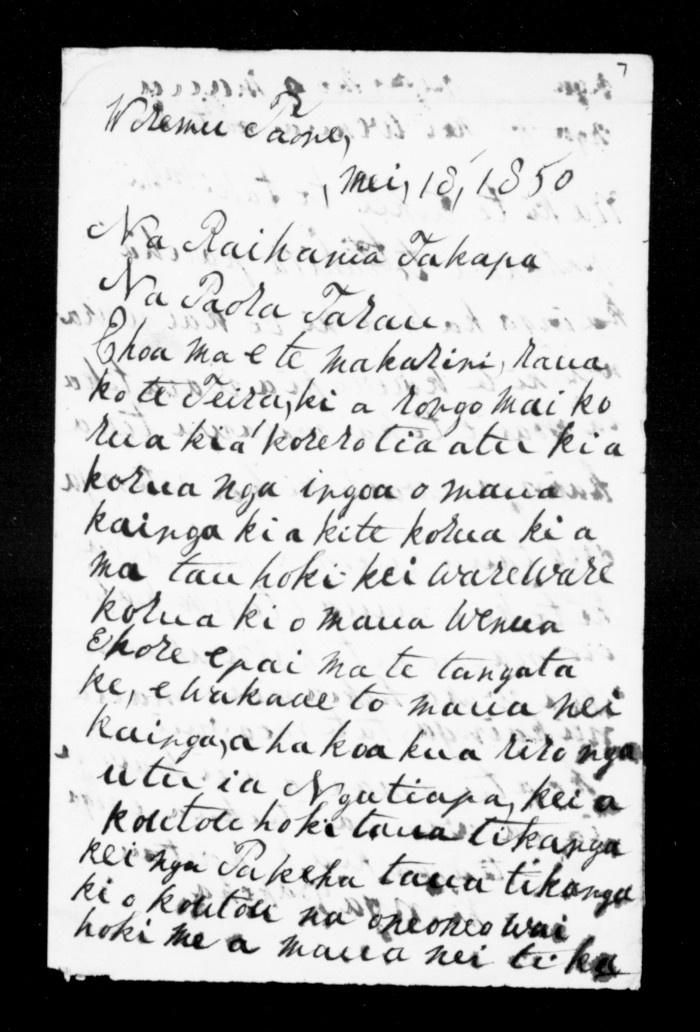 7
Wiremu Taone,
, mei, 18, 1850
Na Raihania Takapa
Na Paora Tarau
Ehoa ma e te makarini, raua
ko te Teira, ki a rongo mai ko
rua kia korerotia atu ki a
korua nga ingoa o maua
kainga ki a kite korua ki a
ma tau hoki kei wareware
korua ki o maua Wenua
Ekore epai ma te tangata
ke, e wakaae to maua nei
kainga, a ha koa kua riro nga
utu i a Ngatiapa, kei a
koutou hoki taua tikanga
kei nga Pakeha taua tikanga
ki o koutou na oneone wai
hoki me a maua nei tika